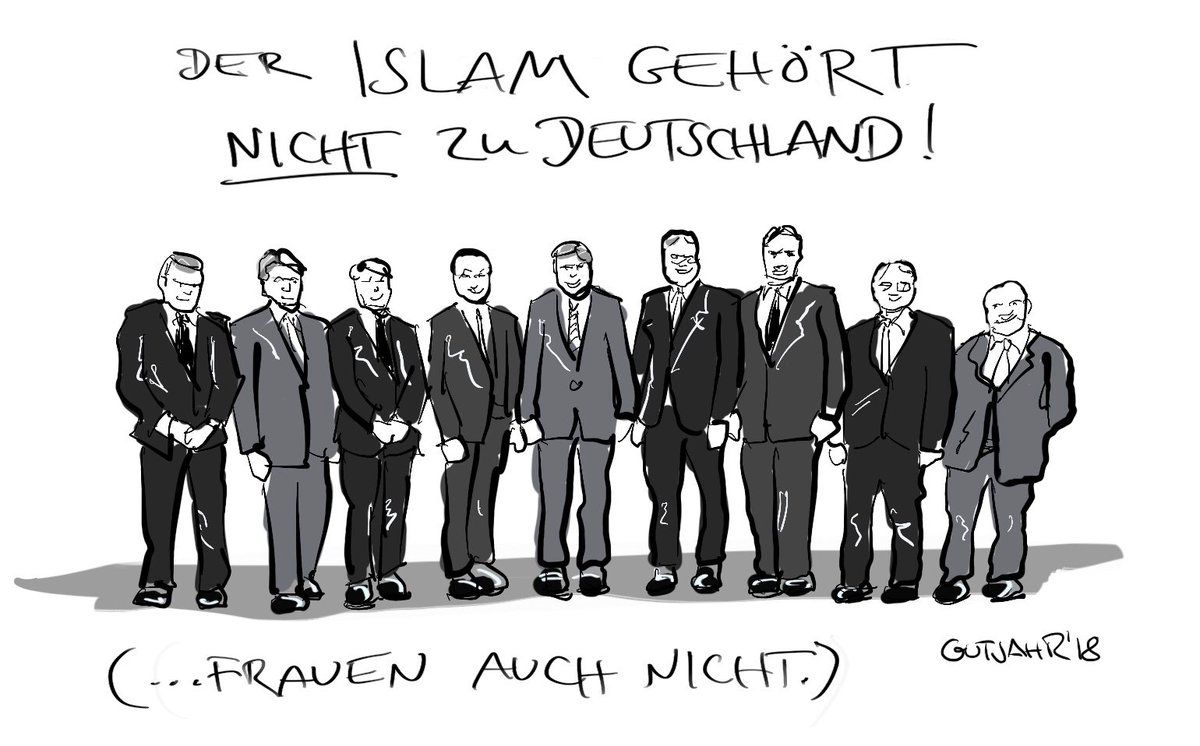 DER ISLAM GEHÖRT
NICHT ZU DEUTSCHLAND!
(...FRAUEN AUCH NICHT.)
GUTJAHR'18